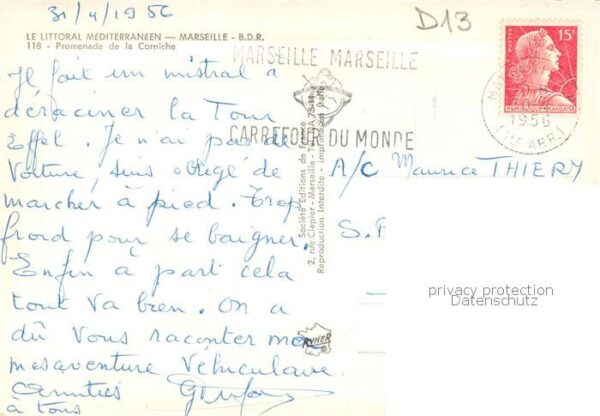 31/4/1956
D13
LE LITTORAL MÉDITERRANÉEN — MARSEILLE - B.D.R.
118 - Promenade de la Corniche
MARSEILLE MARSEILLE
CARREFOUR DU MONDE
15F
1956
Il fait un mistral à
déraciner la Tour
Eiffel. Je n'ai pas de
voiture, suis obligé de
marcher à pied. Trop
froid pour se baigner.
Enfin à part cela
tout va bien. On a
dû vous raconter ma
mesaventure véhiculaire.
Amitiés
à tous
A/C Maurice THIERY
S.P
Société Editions de France
2, rue Clapier - Marseille
Reproduction Interdite
privacy protection
Datenschutz
RYNER